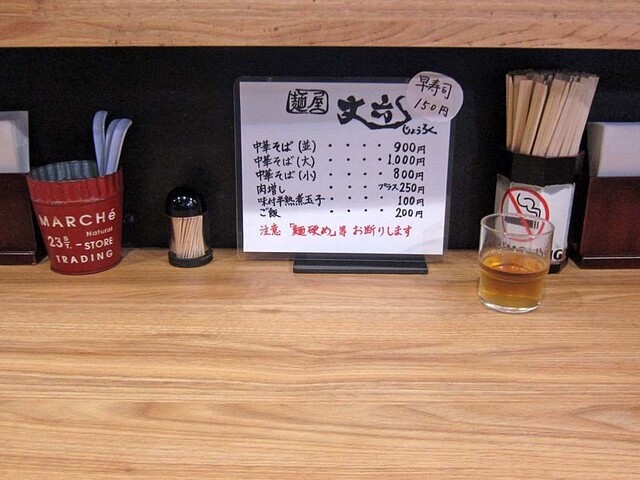 麺屋 丈六
じょうろく
早寿司
150円
中華そば(並)・・・・900円
中華そば(大)・・・・1,000円
中華そば(小)・・・・800円
肉増し・・・・プラス250円
味付半熟煮玉子・・・・100円
ご飯・・・・200円
注意「麺硬め」等 お断りします
MARCHé
Natural
23 -STORE
TRADING